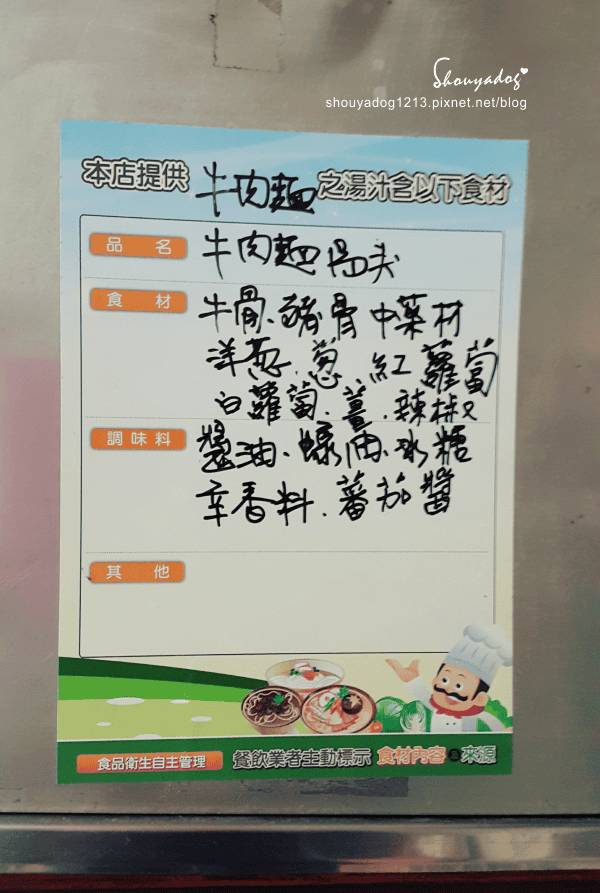 Shouyadog
shouyadog1213.pixnet.net/blog
本店提供 牛肉麵 之湯汁含以下食材
品名 牛肉麵
食材 牛骨、豬骨 中藥材
洋蔥、蔥 紅蘿蔔
白蘿蔔、薑、辣椒
調味料 醬油、蠔油、冰糖
辛香料、蕃茄醬
其他
食品衛生自主管理 餐飲業者主動標示 食材內容 來源